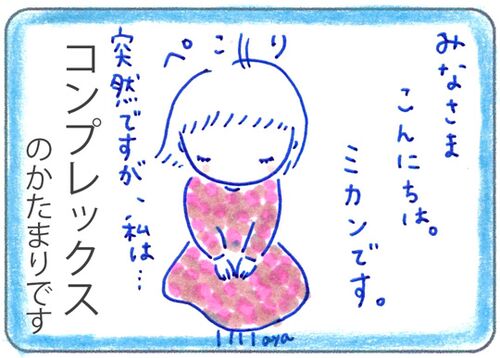 みなさま
こんにちは。
ミカンです。
ぺこり
突然ですが、私は…
コンプレックス
のかたまりです
aya